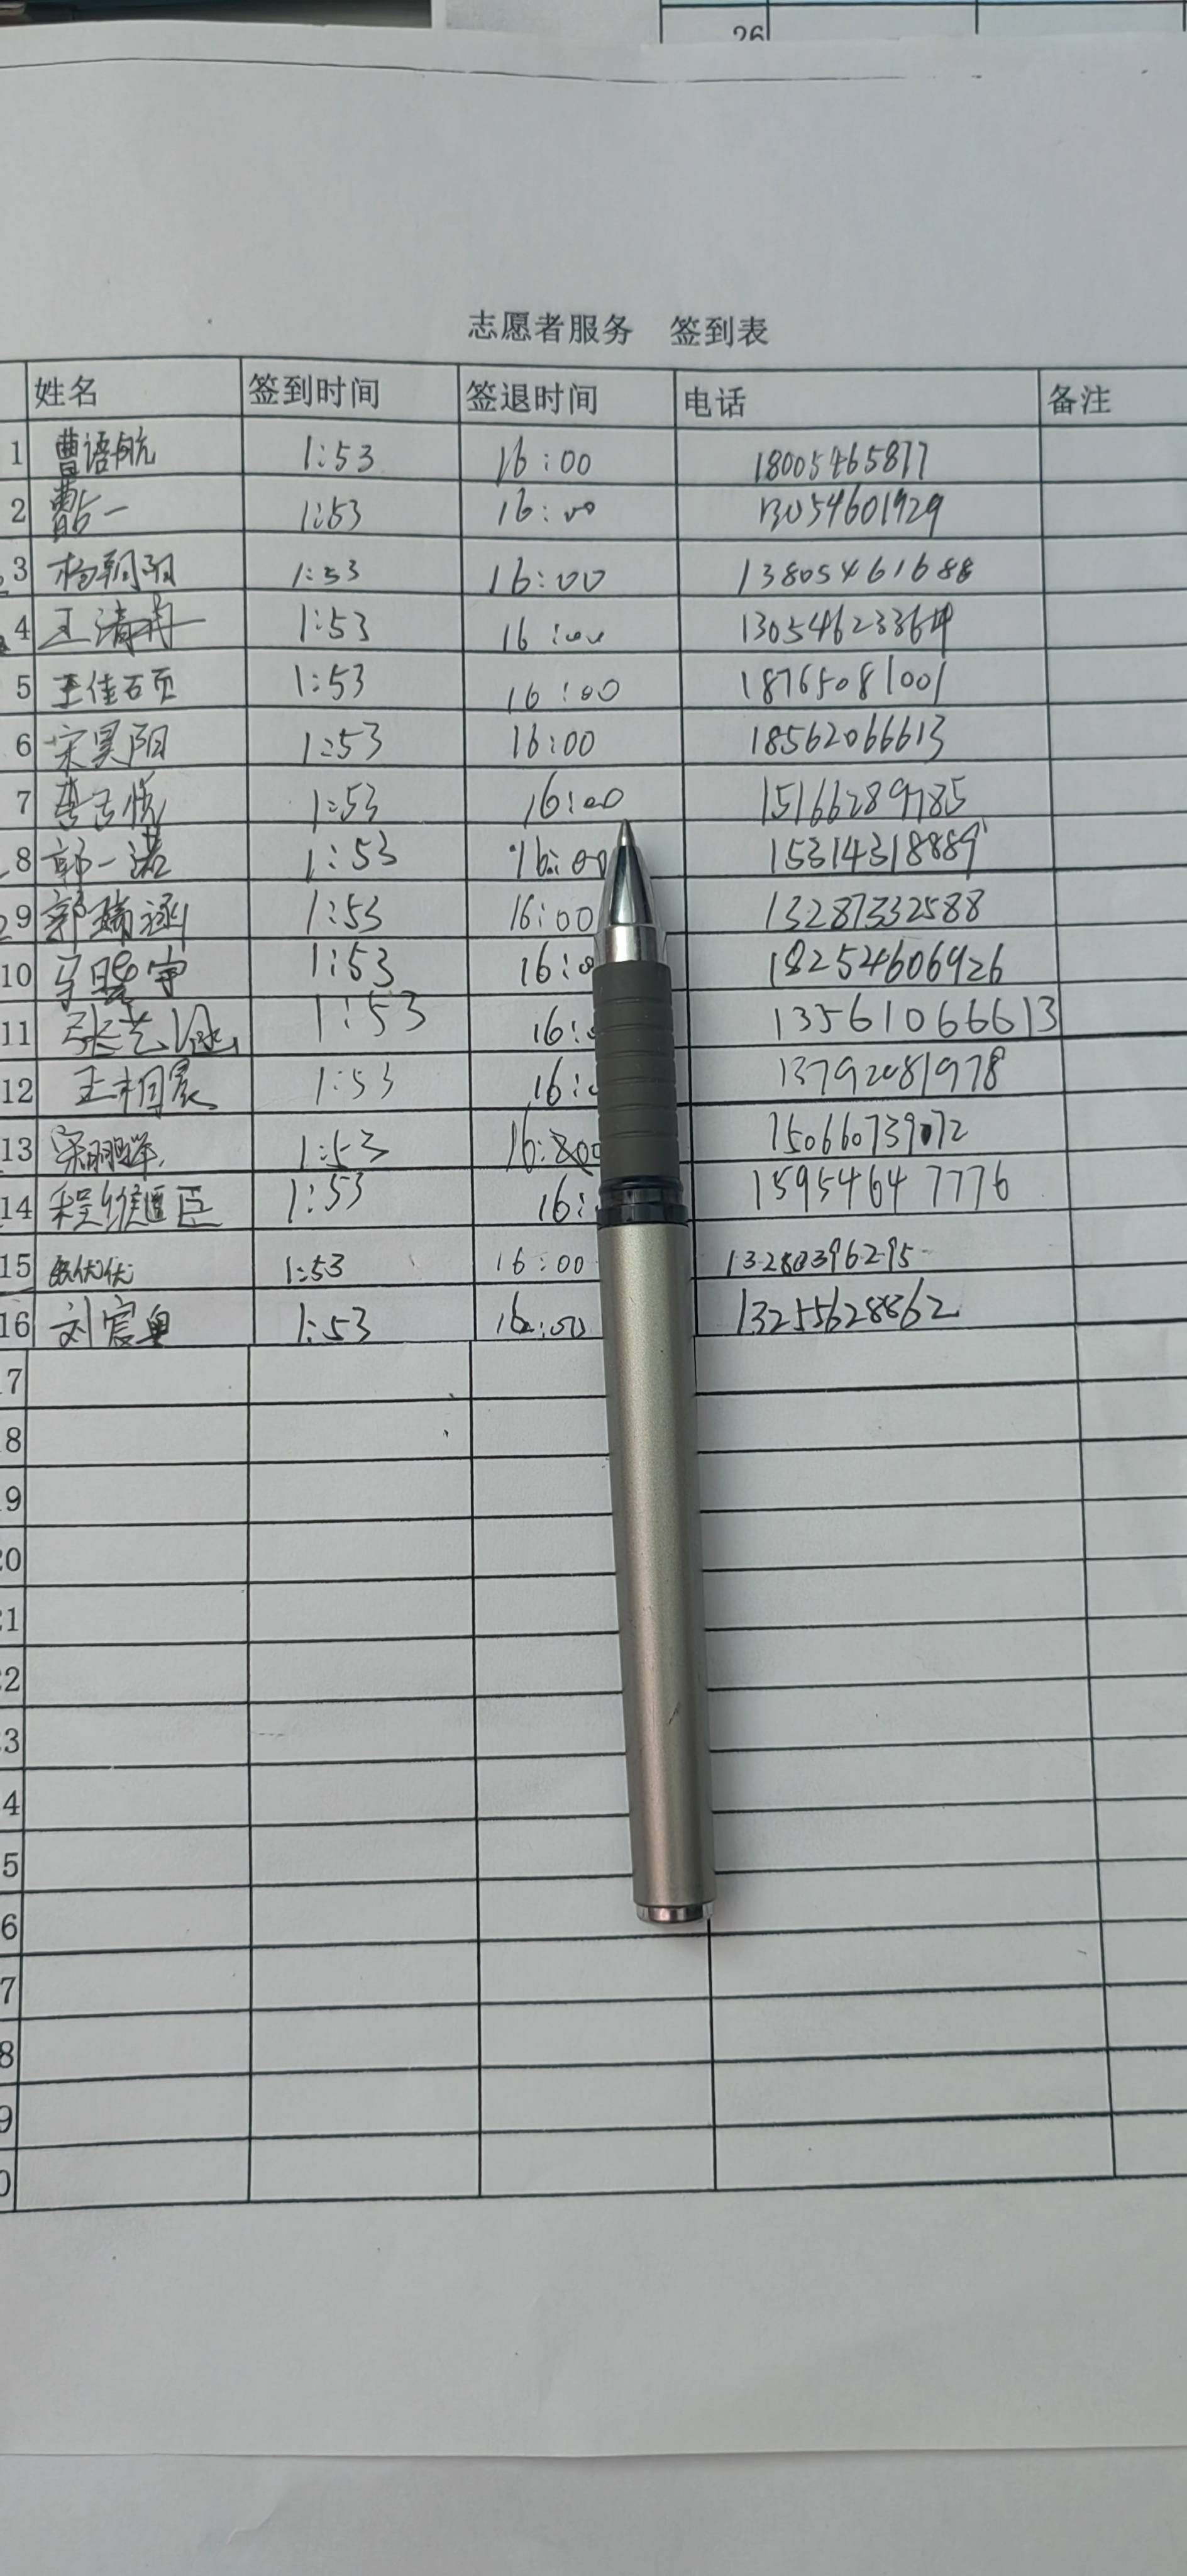 26
志愿者服务 签到表
姓名 签到时间 签退时间 电话 备注
1 曹语航 1:53 16:00 18005465877
2 1:53 16:00 13054601929
3 杨朝阳 1:53 16:00 13805461688
4 王清 1:53 16:00
5 王佳硕 1:53 16:00 18765081001
6 宋昊阳 1:53 16:00 18562066613
7 1:53 16:00 15166289785
8 郭一诺 1:53 16:00 15314318889
9 郭瑞涵 1:53 16:00 13287332588
10 1:53 16:0 18254606926
11 张艺涵 1:53 16: 13561066613
12 王相宸 1:53 16: 13792081978
13 1:53 16:00 15066073972
14 程维 1:53 16: 15954647776
15 1:53 16:00 13280396295
16 刘宸 1:53 16:00 13255628862
7
8
9
20
1
2
3
4
5
6
7
8
9
0